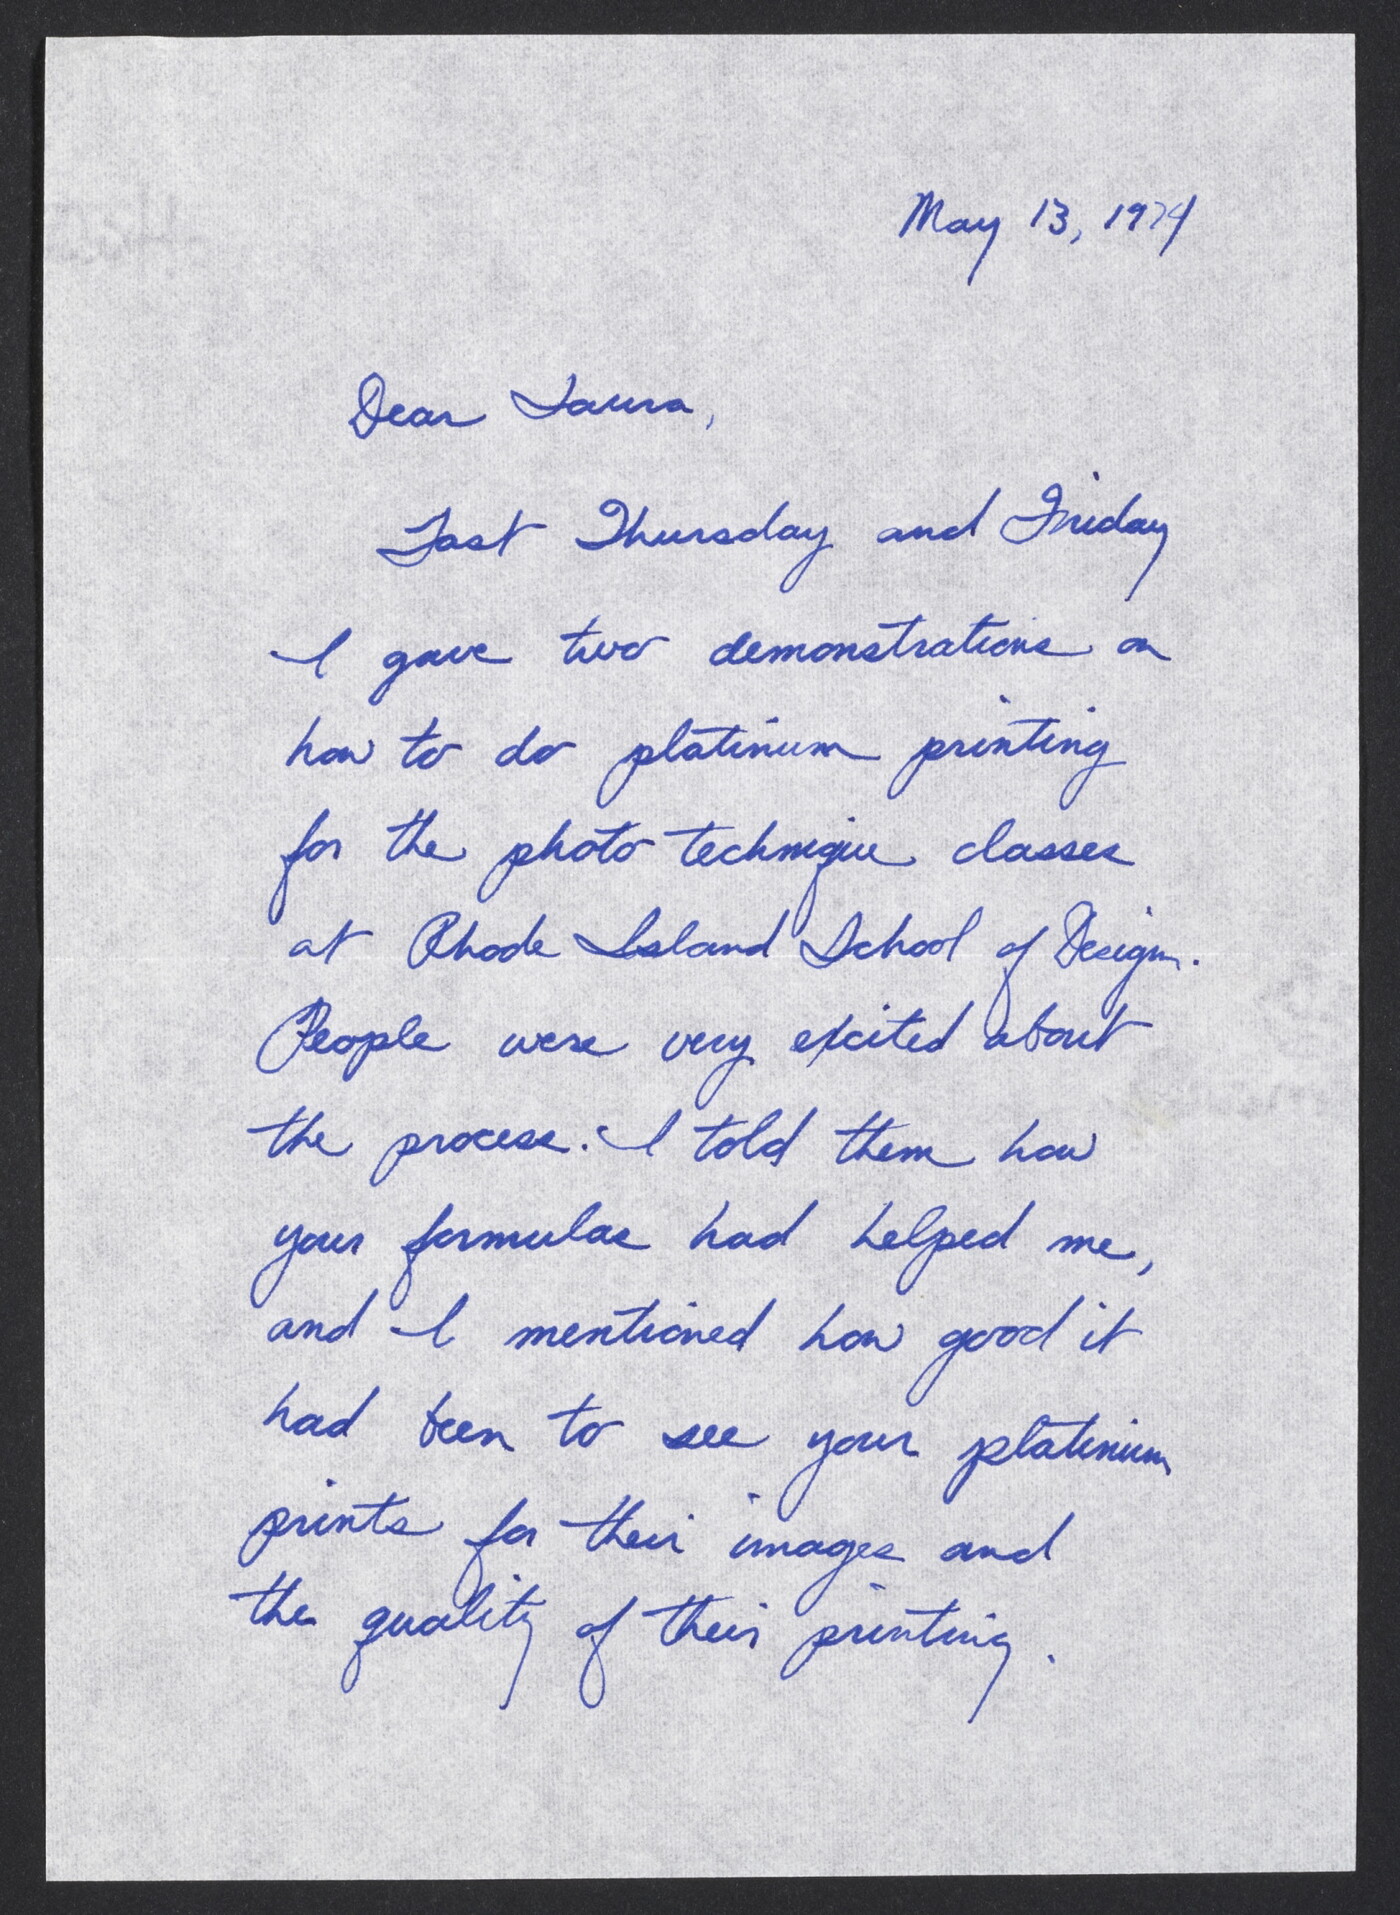 May 13, 1974
Dear Laura,
Last Thursday and Friday
I gave two demonstrations on
how to do platinum printing
for the photo technique classes
at Rhode Island School of Design.
People were very excited about
the process. I told them how
your formulas had helped me,
and I mentioned how good it
had been to see your platinum
prints for their images and
the quality of their printing.